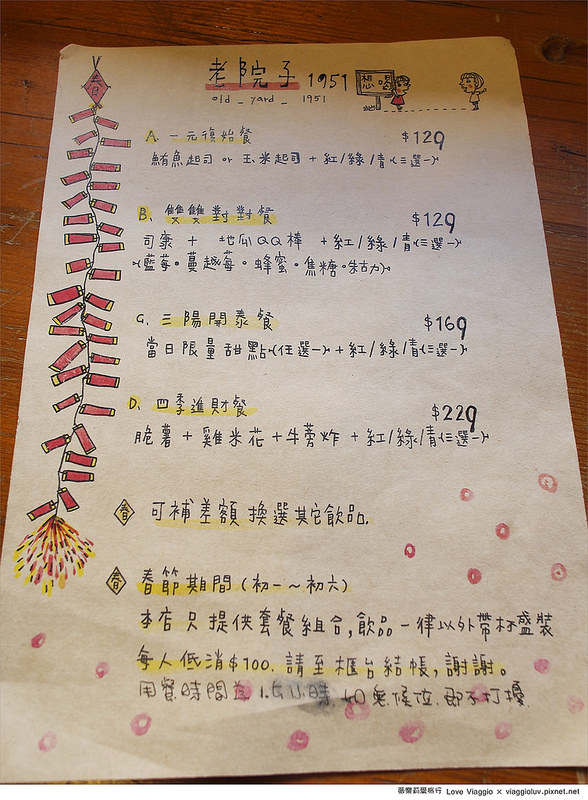 春
老院子 1951
old _ yard _ 1951
想喝
A. 一元復始餐 $129
鮪魚起司 or 玉米起司 + 紅/綠/青(三選一)
B. 雙雙對對餐 $129
司康 + 地瓜QQ棒 + 紅/綠/青(三選一)
(藍莓。蔓越莓。蜂蜜。焦糖。朱古力)
C. 三陽開泰餐 $169
當日限量甜點(任選一) + 紅/綠/青(三選一)
D. 四季進財餐 $229
脆薯 + 雞米花 + 牛蒡炸 + 紅/綠/青(三選一)
春 可補差額換選其它飲品.
春 春節期間(初一~初六)
本店只提供套餐組合,飲品一律以外帶杯盛裝
每人低消$100. 請至櫃台結帳,謝謝。
用餐時間為1.5小時.
蓓蒂莉愛旅行 Love Viaggio × viaggioluv.pixnet.net